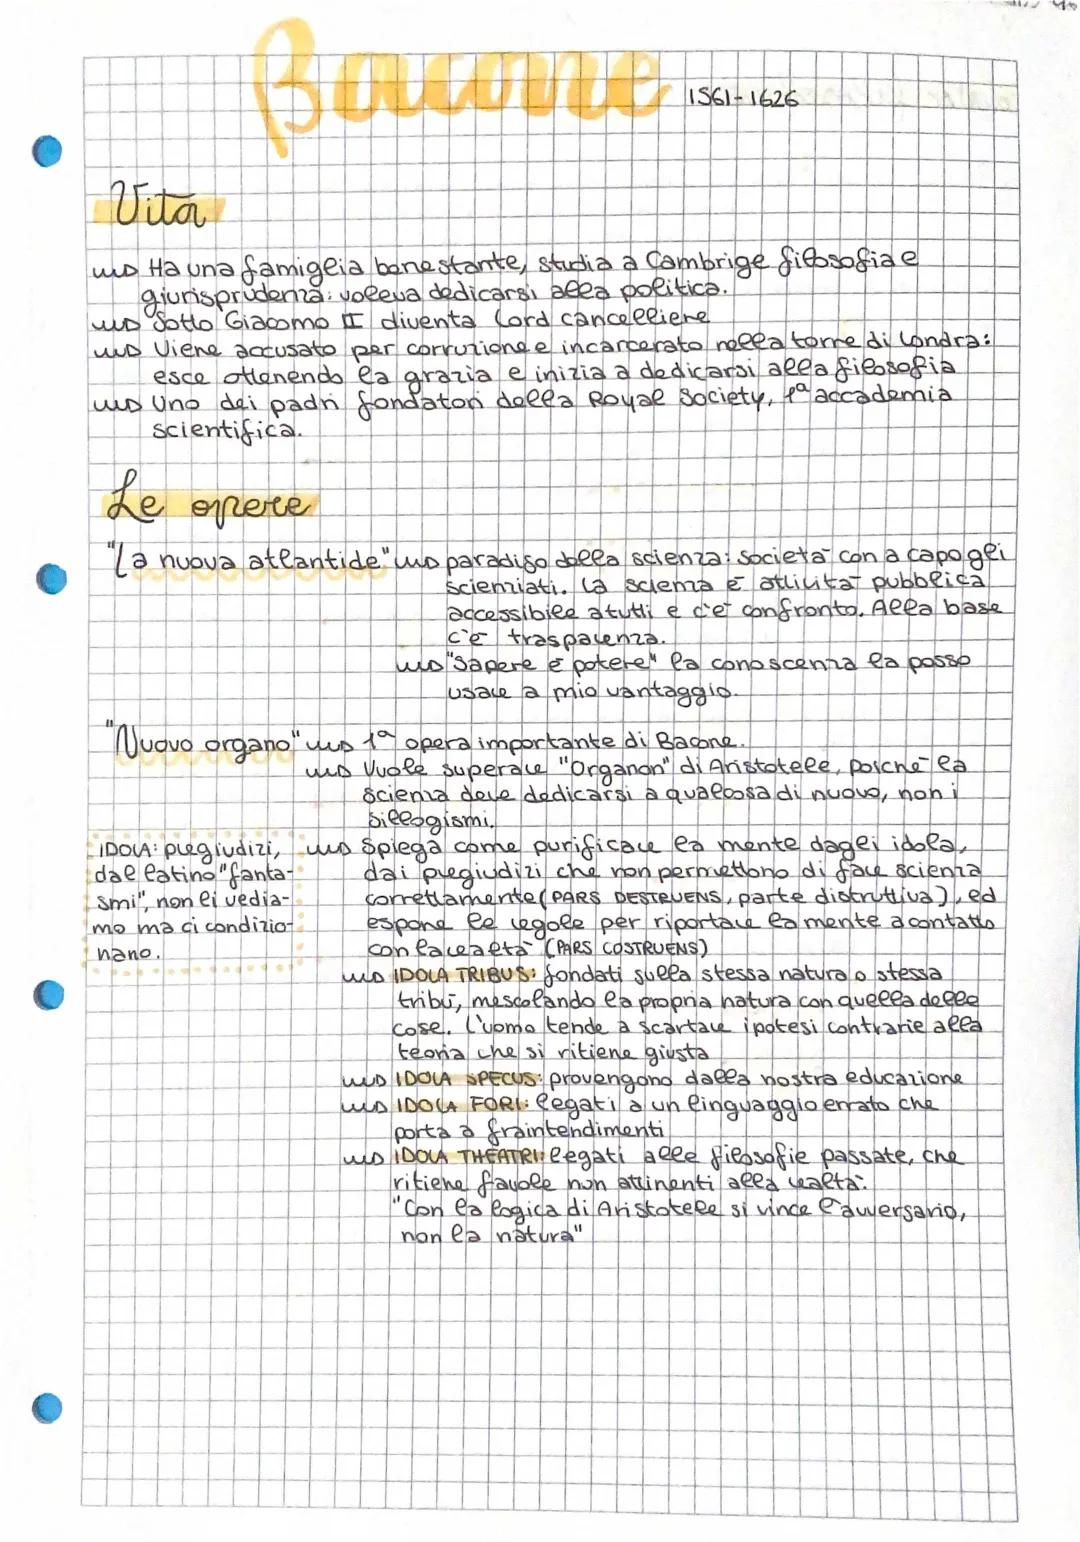 Bacone 1561-1626
Vita
Ha una famiglia benestante, studia a Cambrige filosofia e
giurisprudenza: voleva dedicarsi alla politica.
Sotto Giacomo II diventa Lord cancelliere
Viene accusato per corruzione e incarcerato nella torre di Londra:
esce ottenendo la grazia e inizia a dedicarsi alla filosofia
Uno dei padri fondatori della Royal Society, 1ª accademia
scientifica.
Le opere
"La nuova atlantide" paradiso della scienza: società con a capo gli
scienziati. La scienza è attività pubblica
accessibile a tutti e c'è confronto. Alla base
c'è trasparenza.
"Sapere è potere" la conoscenza la posso
usare a mio vantaggio.
"Nuovo organo" 1ª opera importante di Bacone.
Vuole superare "Organon" di Aristotele, poiché la
scienza deve dedicarsi a qualcosa di nuovo, non i
sillogismi.
Spiega come purificare la mente dagli idola,
dai pregiudizi che non permettono di fare scienza
correttamente (PARS DESTRUENS, parte distruttiva), ed
espone le regole per riportare la mente a contatto
con la realtà (PARS COSTRUENS)
IDOLA: pregiudizi,
dal latino "fanta-
smi", non li vedia-
mo ma ci condizio-
nano.
IDOLA TRIBUS: fondati sulla stessa natura o stessa
tribù, mescolando la propria natura con quella delle
cose. L'uomo tende a scartare ipotesi contrarie alla
teoria che si ritiene giusta
IDOLA SPECUS: provengono dalla nostra educazione
IDOLA FORI: legati a un linguaggio errato che
porta a fraintendimenti
IDOLA THEATRI: legati alle filosofie passate, che
ritiene favole non attinenti alla realtà:
"Con la logica di Aristotele si vince l'avversario,
non la natura"